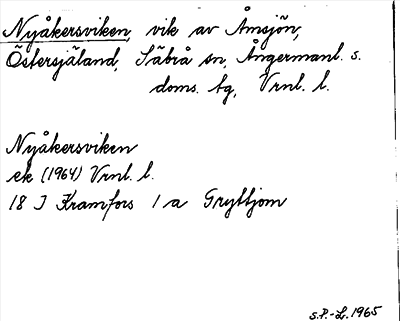 Nyåkersviken, vik av Åmsjön,
Östersjäland, Säbrå sn, Ångermanl. s.
doms. tg, Vrnl. l.
Nyåkersviken
ek (1964) Vrnl. l.
18 I Kramfors 1 a Gryttjom
S.P.-L. 1965